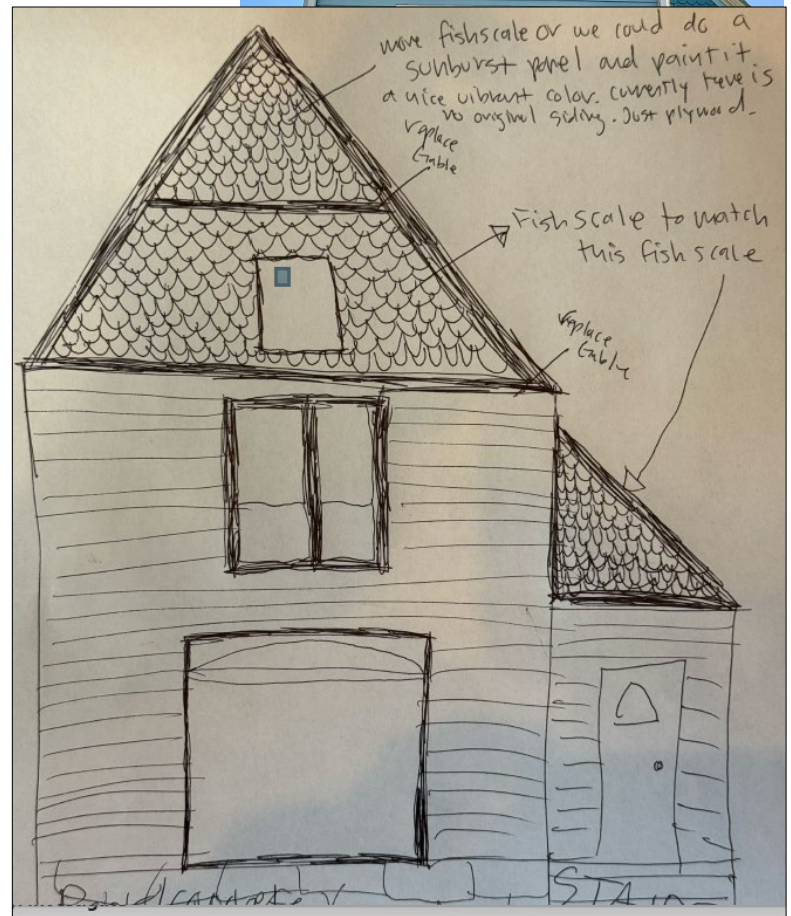 more fishscale or we could do a
sunburst panel and paint it
a nice vibrant color. currently there is
no original siding. Just plywood.
replace
Gable
Fish scale to match
this fish scale
replace
Gable
STAIR